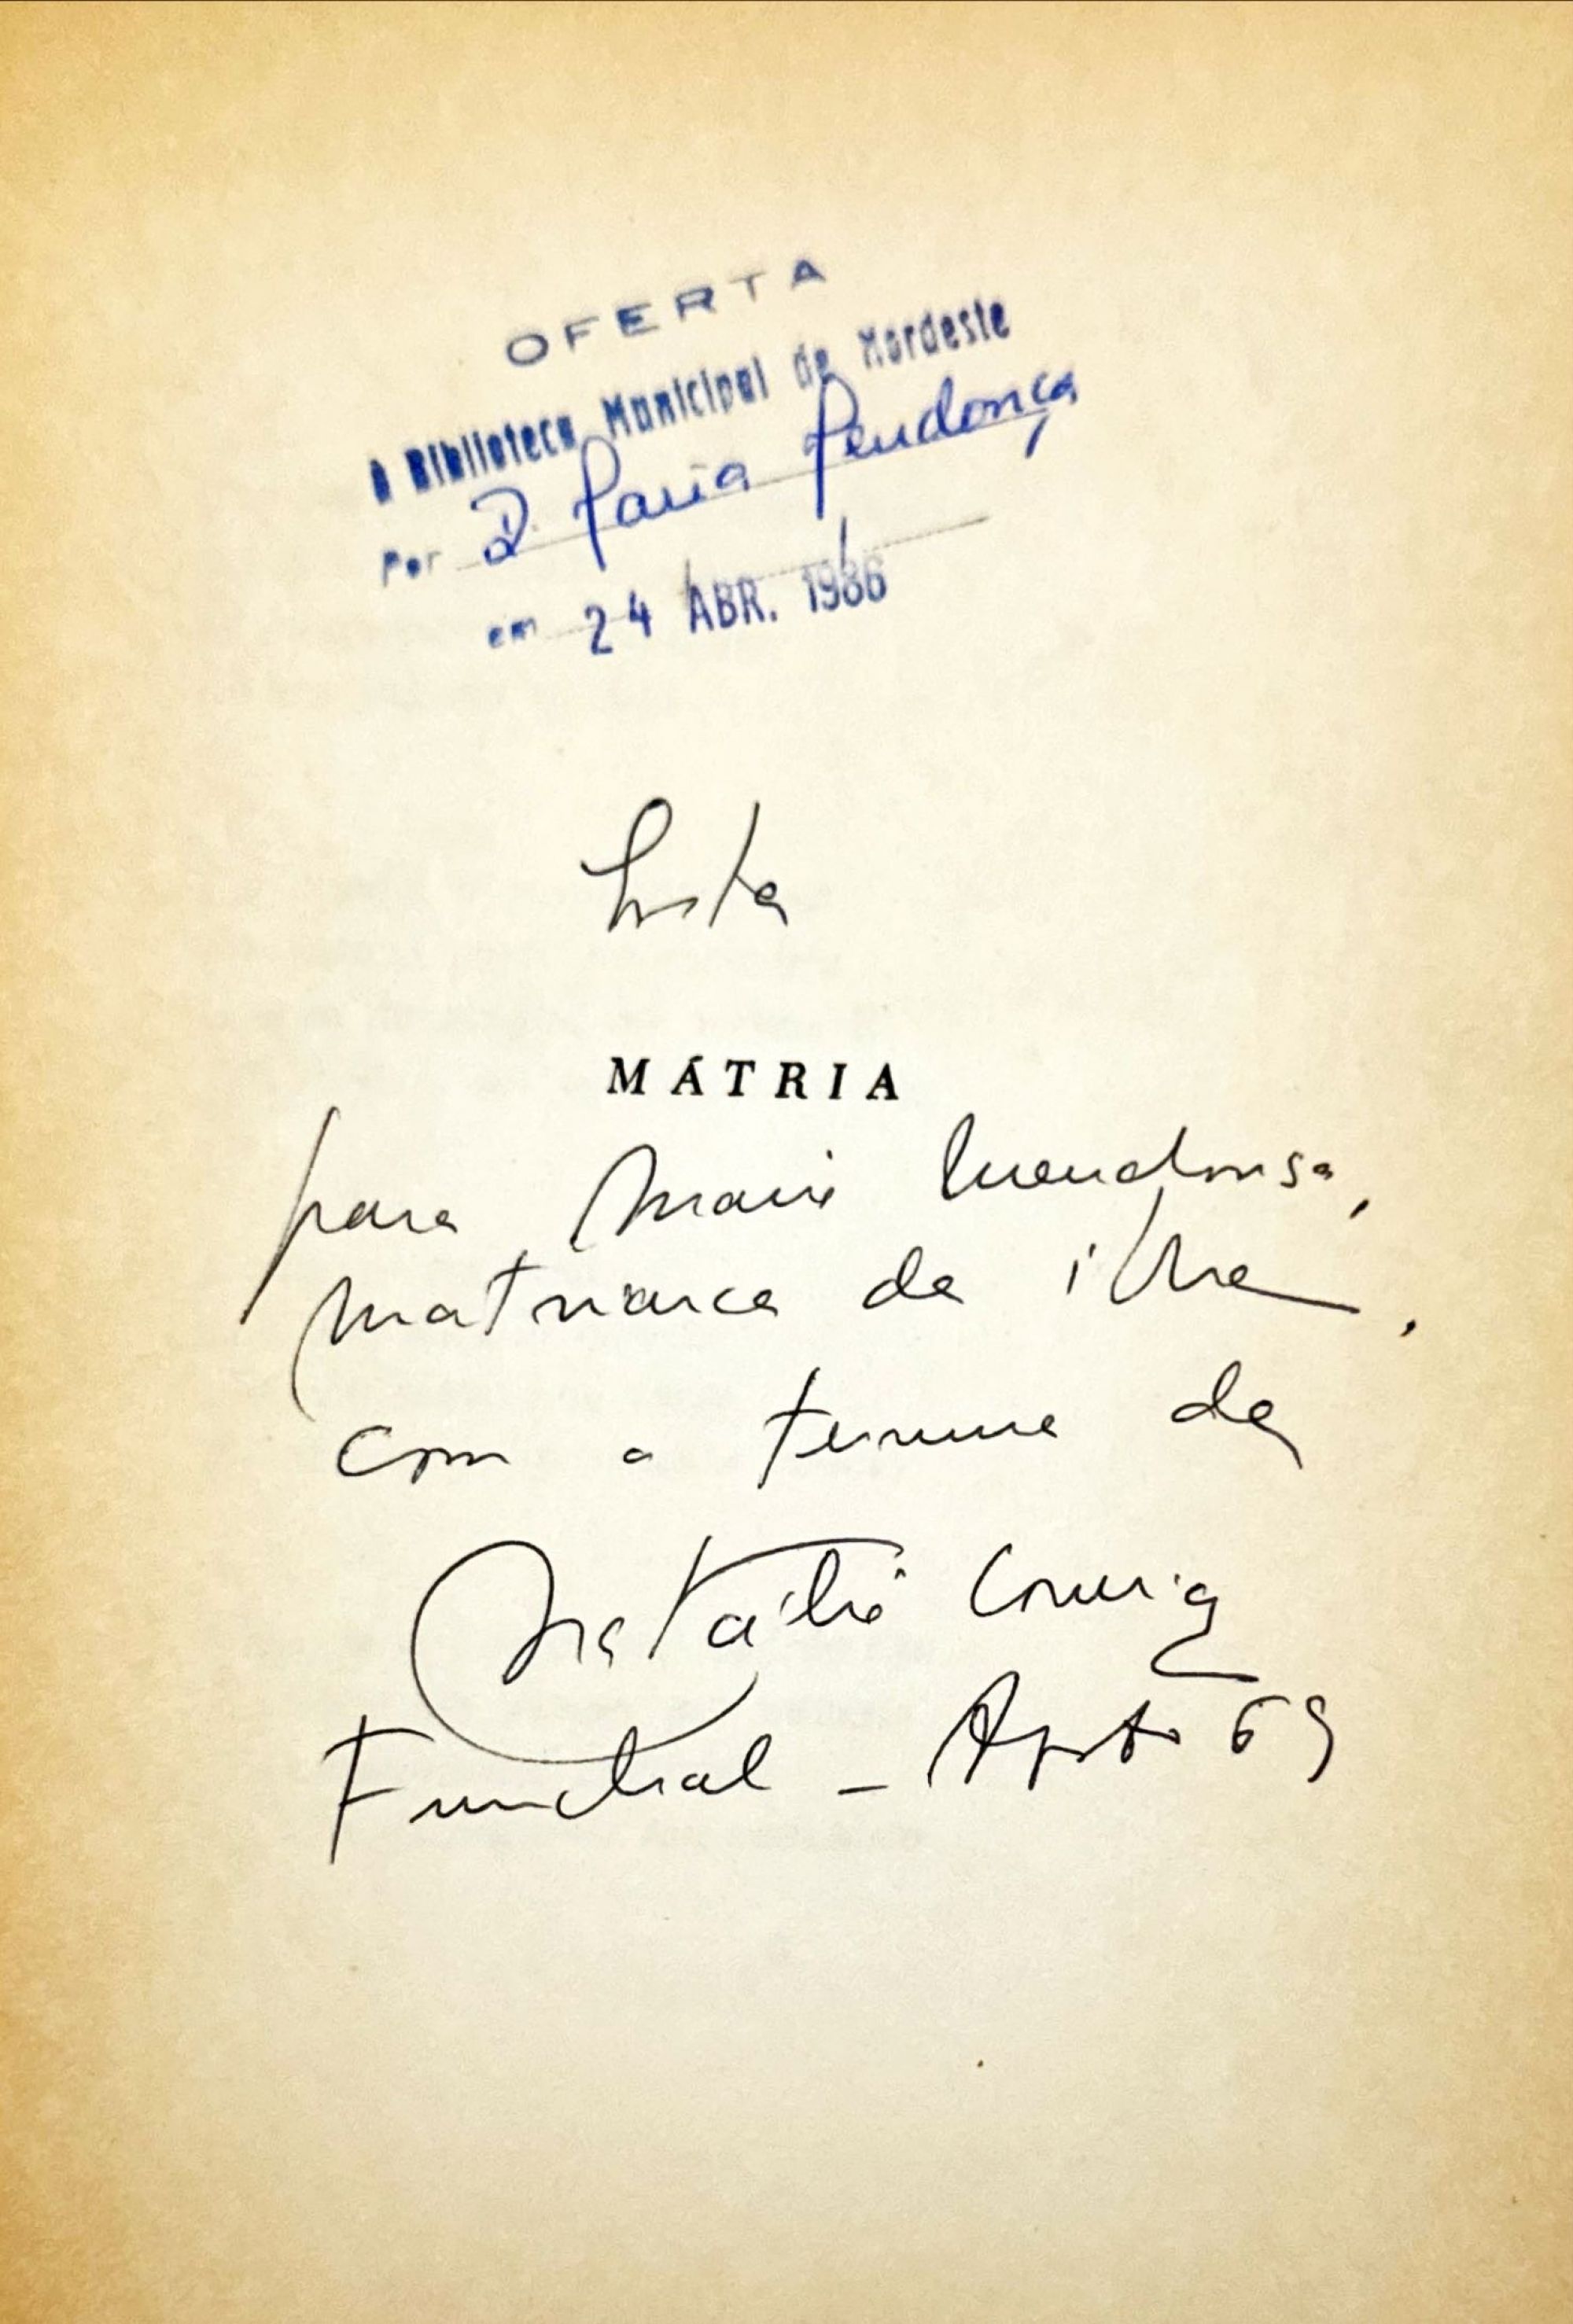 OFERTA
à Biblioteca Municipal de Nordeste
Por D. Maria Mendonça
em 24 ABR. 1986
Esta
MÁTRIA
para Maria Mendonsa,
matriarca da ilha,
com a ternura da
Natália Correia
Funchal – Agosto 69